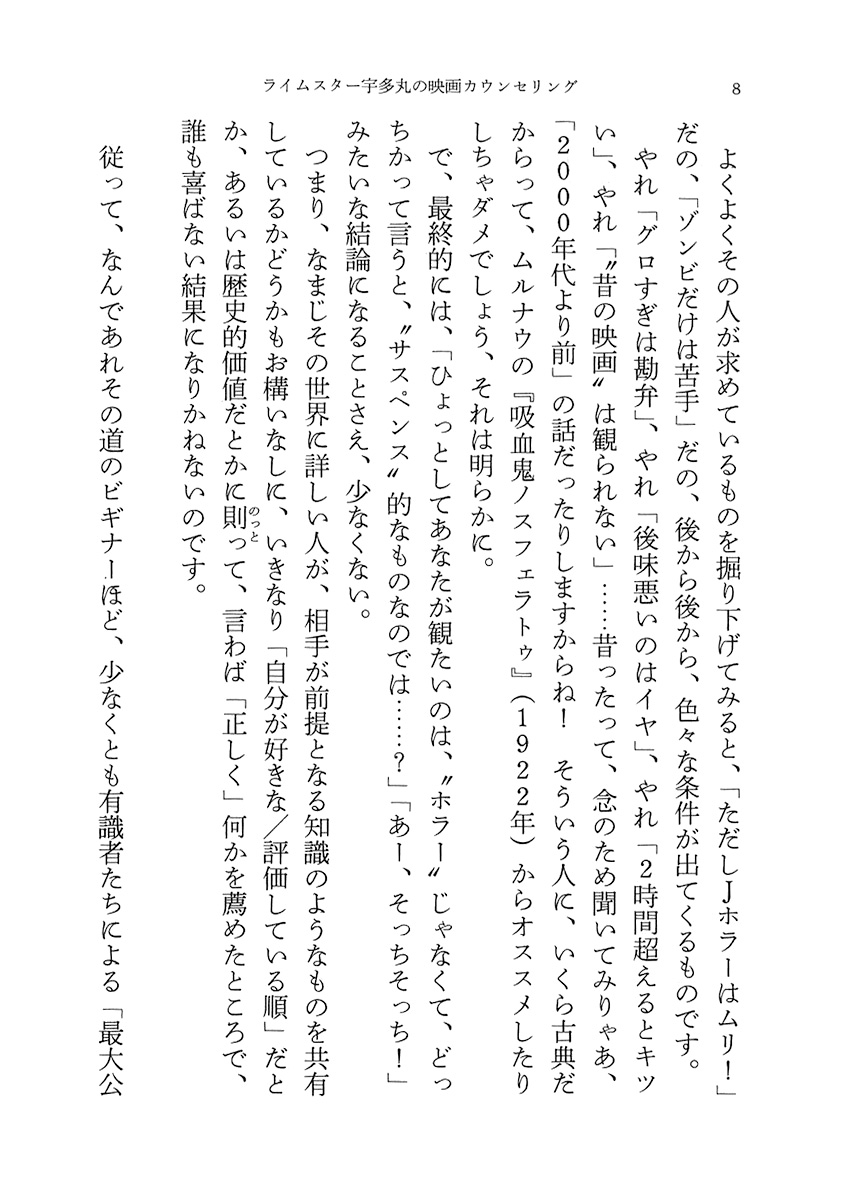 ライムスター宇多丸の映画カウンセリング
8
よくよくその人が求めているものを掘り下げてみると、「ただしJホラーはムリ！」
だの、「ゾンビだけは苦手」だの、後から後から、色々な条件が出てくるものです。
やれ「グロすぎは勘弁」、やれ「後味悪いのはイヤ」、やれ「2時間超えるとキツ
い」、やれ「〝昔の映画〟は観られない」……昔ったって、念のため聞いてみりゃあ、
「2000年代より前」の話だったりしますからね！　そういう人に、いくら古典だ
からって、ムルナウの『吸血鬼ノスフェラトゥ』（1922年）からオススメしたり
しちゃダメでしょう、それは明らかに。
で、最終的には、「ひょっとしてあなたが観たいのは、〝ホラー〟じゃなくて、どっ
ちかって言うと、〝サスペンス〟的なものなのでは……？」「あー、そっちそっち！」
みたいな結論になることさえ、少なくない。
つまり、なまじその世界に詳しい人が、相手が前提となる知識のようなものを共有
しているかどうかもお構いなしに、いきなり「自分が好きな／評価している順」だと
か、あるいは歴史的価値だとかに則って、言わば「正しく」何かを薦めたところで、
のっと
誰も喜ばない結果になりかねないのです。
従って、なんであれその道のビギナーほど、少なくとも有識者たちによる「最大公